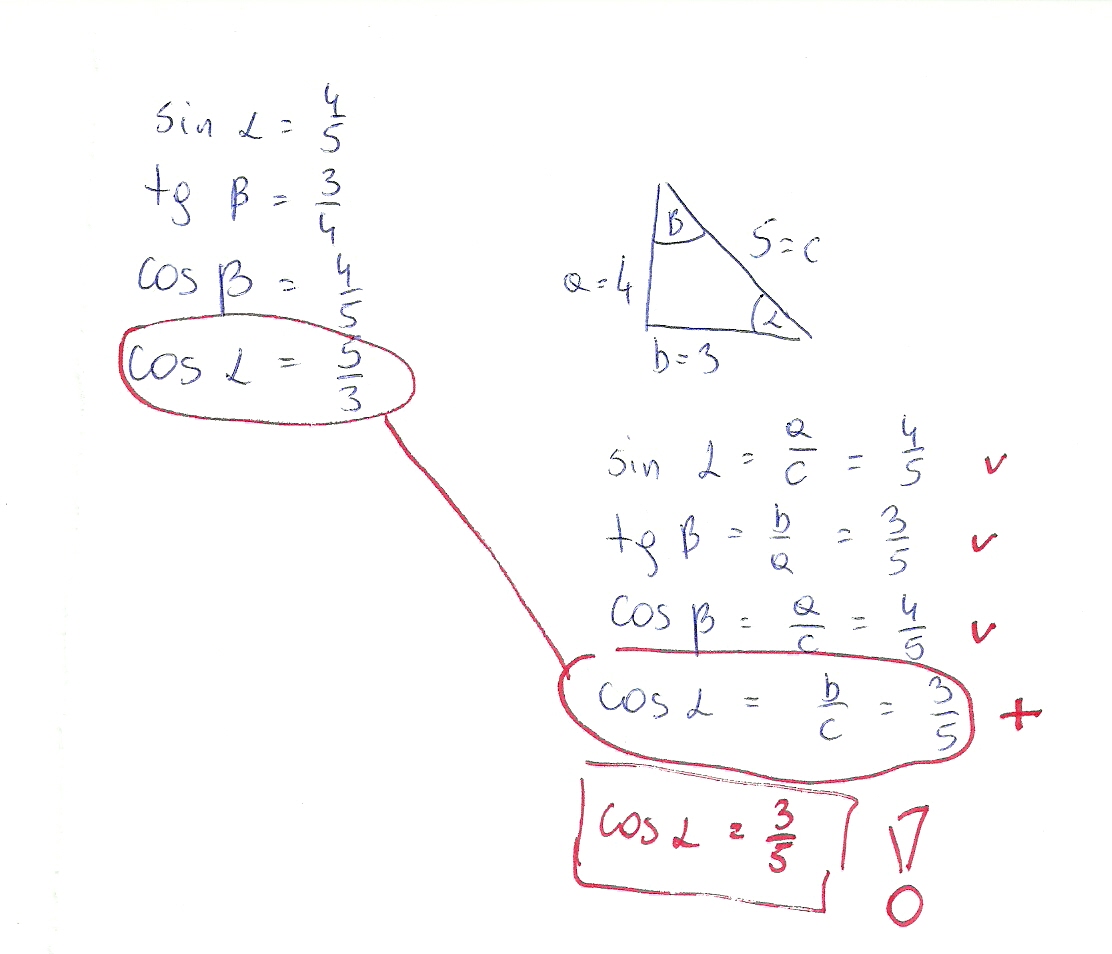 sin α = 4/5
tg β = 3/4
cos β = 4/5
cos α = 5/3
β
a = 4
5 = c
α
b = 3
sin α = a/c = 4/5 v
tg β = b/a = 3/5 v
cos β = a/c = 4/5 v
cos α = b/c = 3/5 +
cos α = 3/5 !